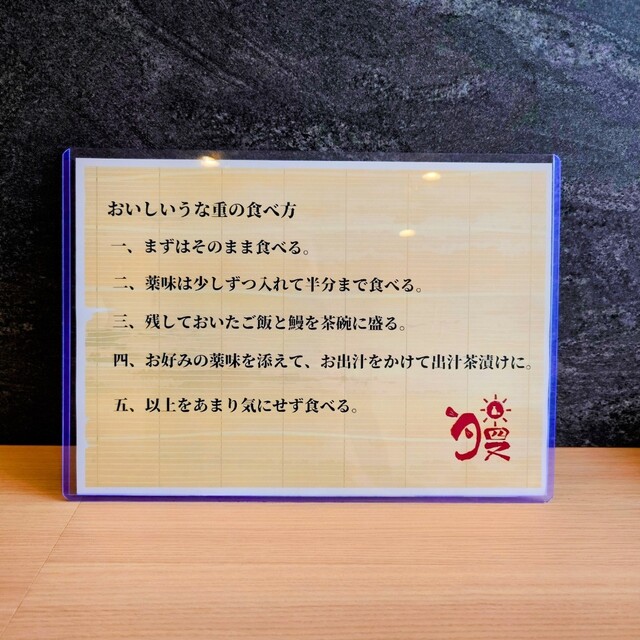 おいしいうな重の食べ方
一、まずはそのまま食べる。
二、薬味は少しずつ入れて半分まで食べる。
三、残しておいたご飯と鰻を茶碗に盛る。
四、お好みの薬味を添えて、お出汁をかけて出汁茶漬けに。
五、以上をあまり気にせず食べる。